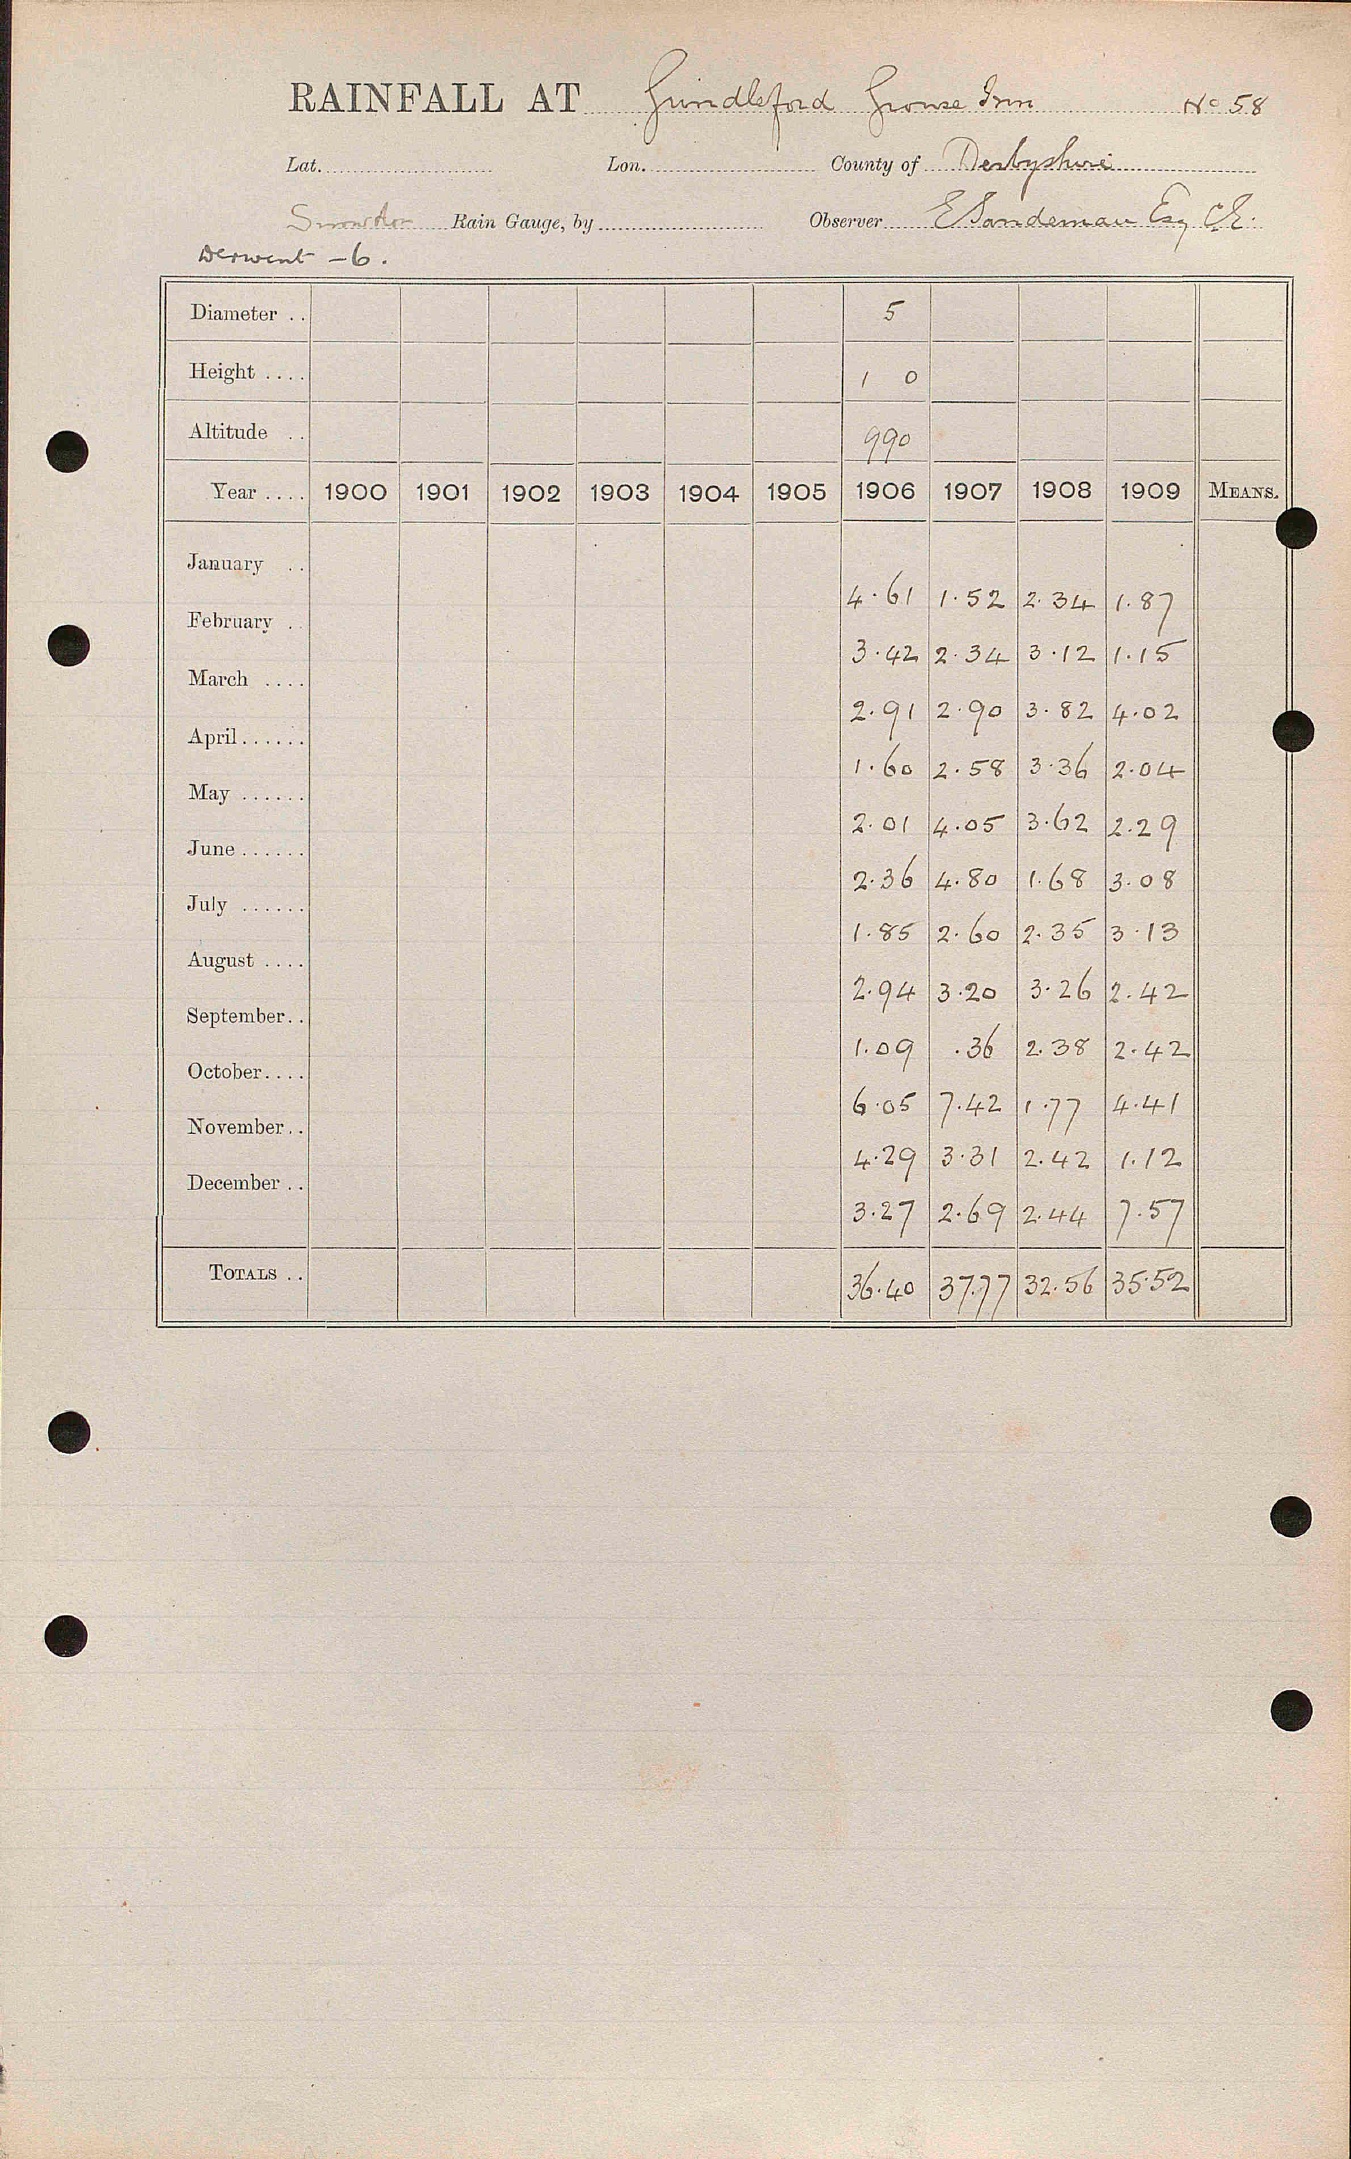 RAINFALL AT Grindleford Grouse Inn No 58
Lat. Lon. County of Derbyshire
Snowdon Rain Gauge, by Observer E Sandeman Esq C.E.
Derwent - 6.
Diameter .. 5
Height .... 1 0
Altitude .. 990
Year .... 1900 1901 1902 1903 1904 1905 1906 1907 1908 1909 MEANS.
January .. 4.61 1.52 2.34 1.87
February .. 3.42 2.34 3.12 1.15
March .... 2.91 2.90 3.82 4.02
April...... 1.60 2.58 3.36 2.04
May ...... 2.01 4.05 3.62 2.29
June ...... 2.36 4.80 1.68 3.08
July ...... 1.85 2.60 2.35 3.13
August .... 2.94 3.20 3.26 2.42
September.. 1.09 .36 2.38 2.42
October.... 6.05 7.42 1.77 4.41
November.. 4.29 3.31 2.42 1.12
December .. 3.27 2.69 2.44 7.57
TOTALS .. 36.40 37.77 32.56 35.52